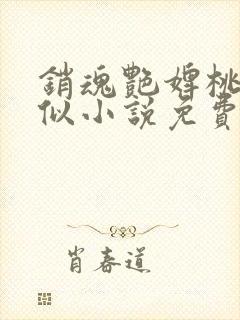 銷魂艷婢桃
似小說免費
肖春道